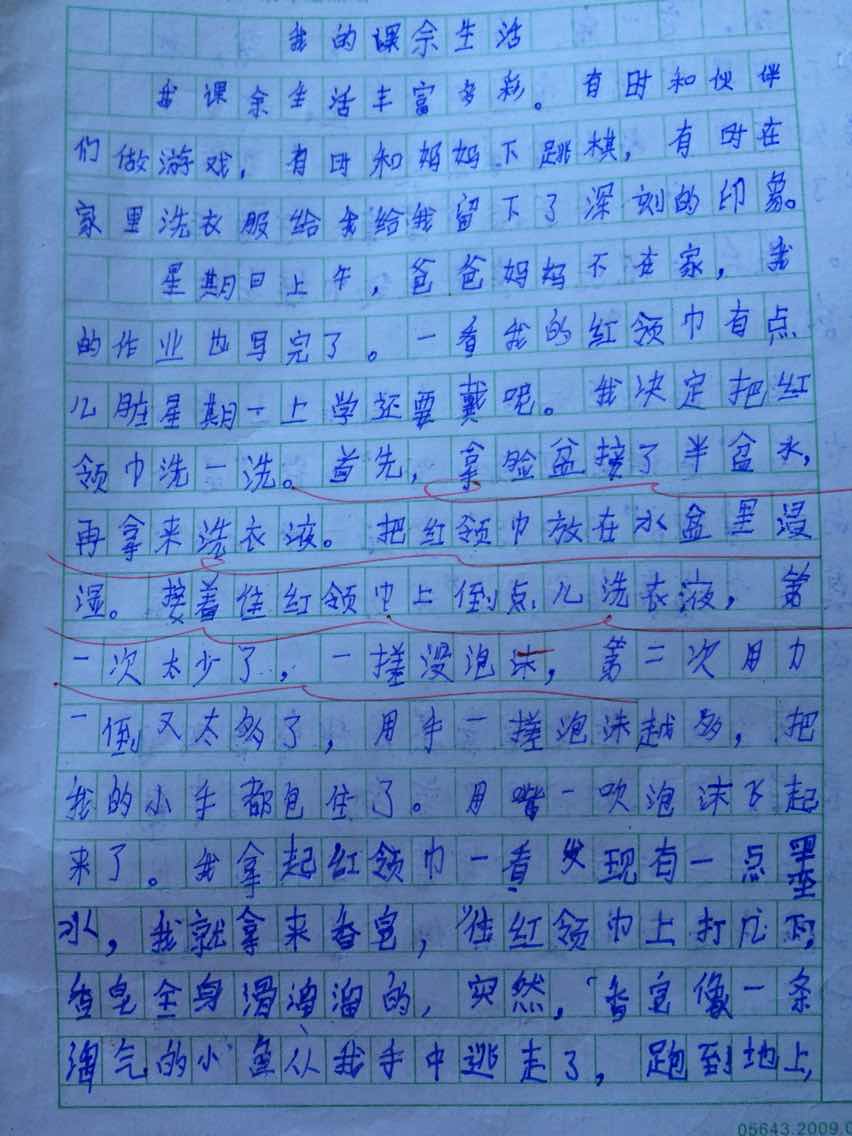 我的课余生活
我课余生活丰富多彩。有时和伙伴
们做游戏，有时和妈妈下跳棋，有时在
家里洗衣服给我给我留下了深刻的印象。
星期日上午，爸爸妈妈不在家，我
的作业也写完了。一看我的红领巾有点
儿脏星期一上学还要戴呢。我决定把红
领巾洗一洗。首先，拿脸盆接了半盆水，
再拿来洗衣液。把红领巾放在水盆里浸
湿。接着往红领巾上倒点儿洗衣液，第
一次太少了，一搓没泡沫，第二次用力
一倒又太多了，用手一搓泡沫越多，把
我的小手都包住了。用嘴一吹泡沫飞起
来了。我拿起红领巾一看发现有一点墨
水，我就拿来香皂，往红领巾上打几下，
香皂全身滑溜溜的，突然，香皂像一条
淘气的小鱼从我手中逃走了，跑到地上，
05643.2009.0